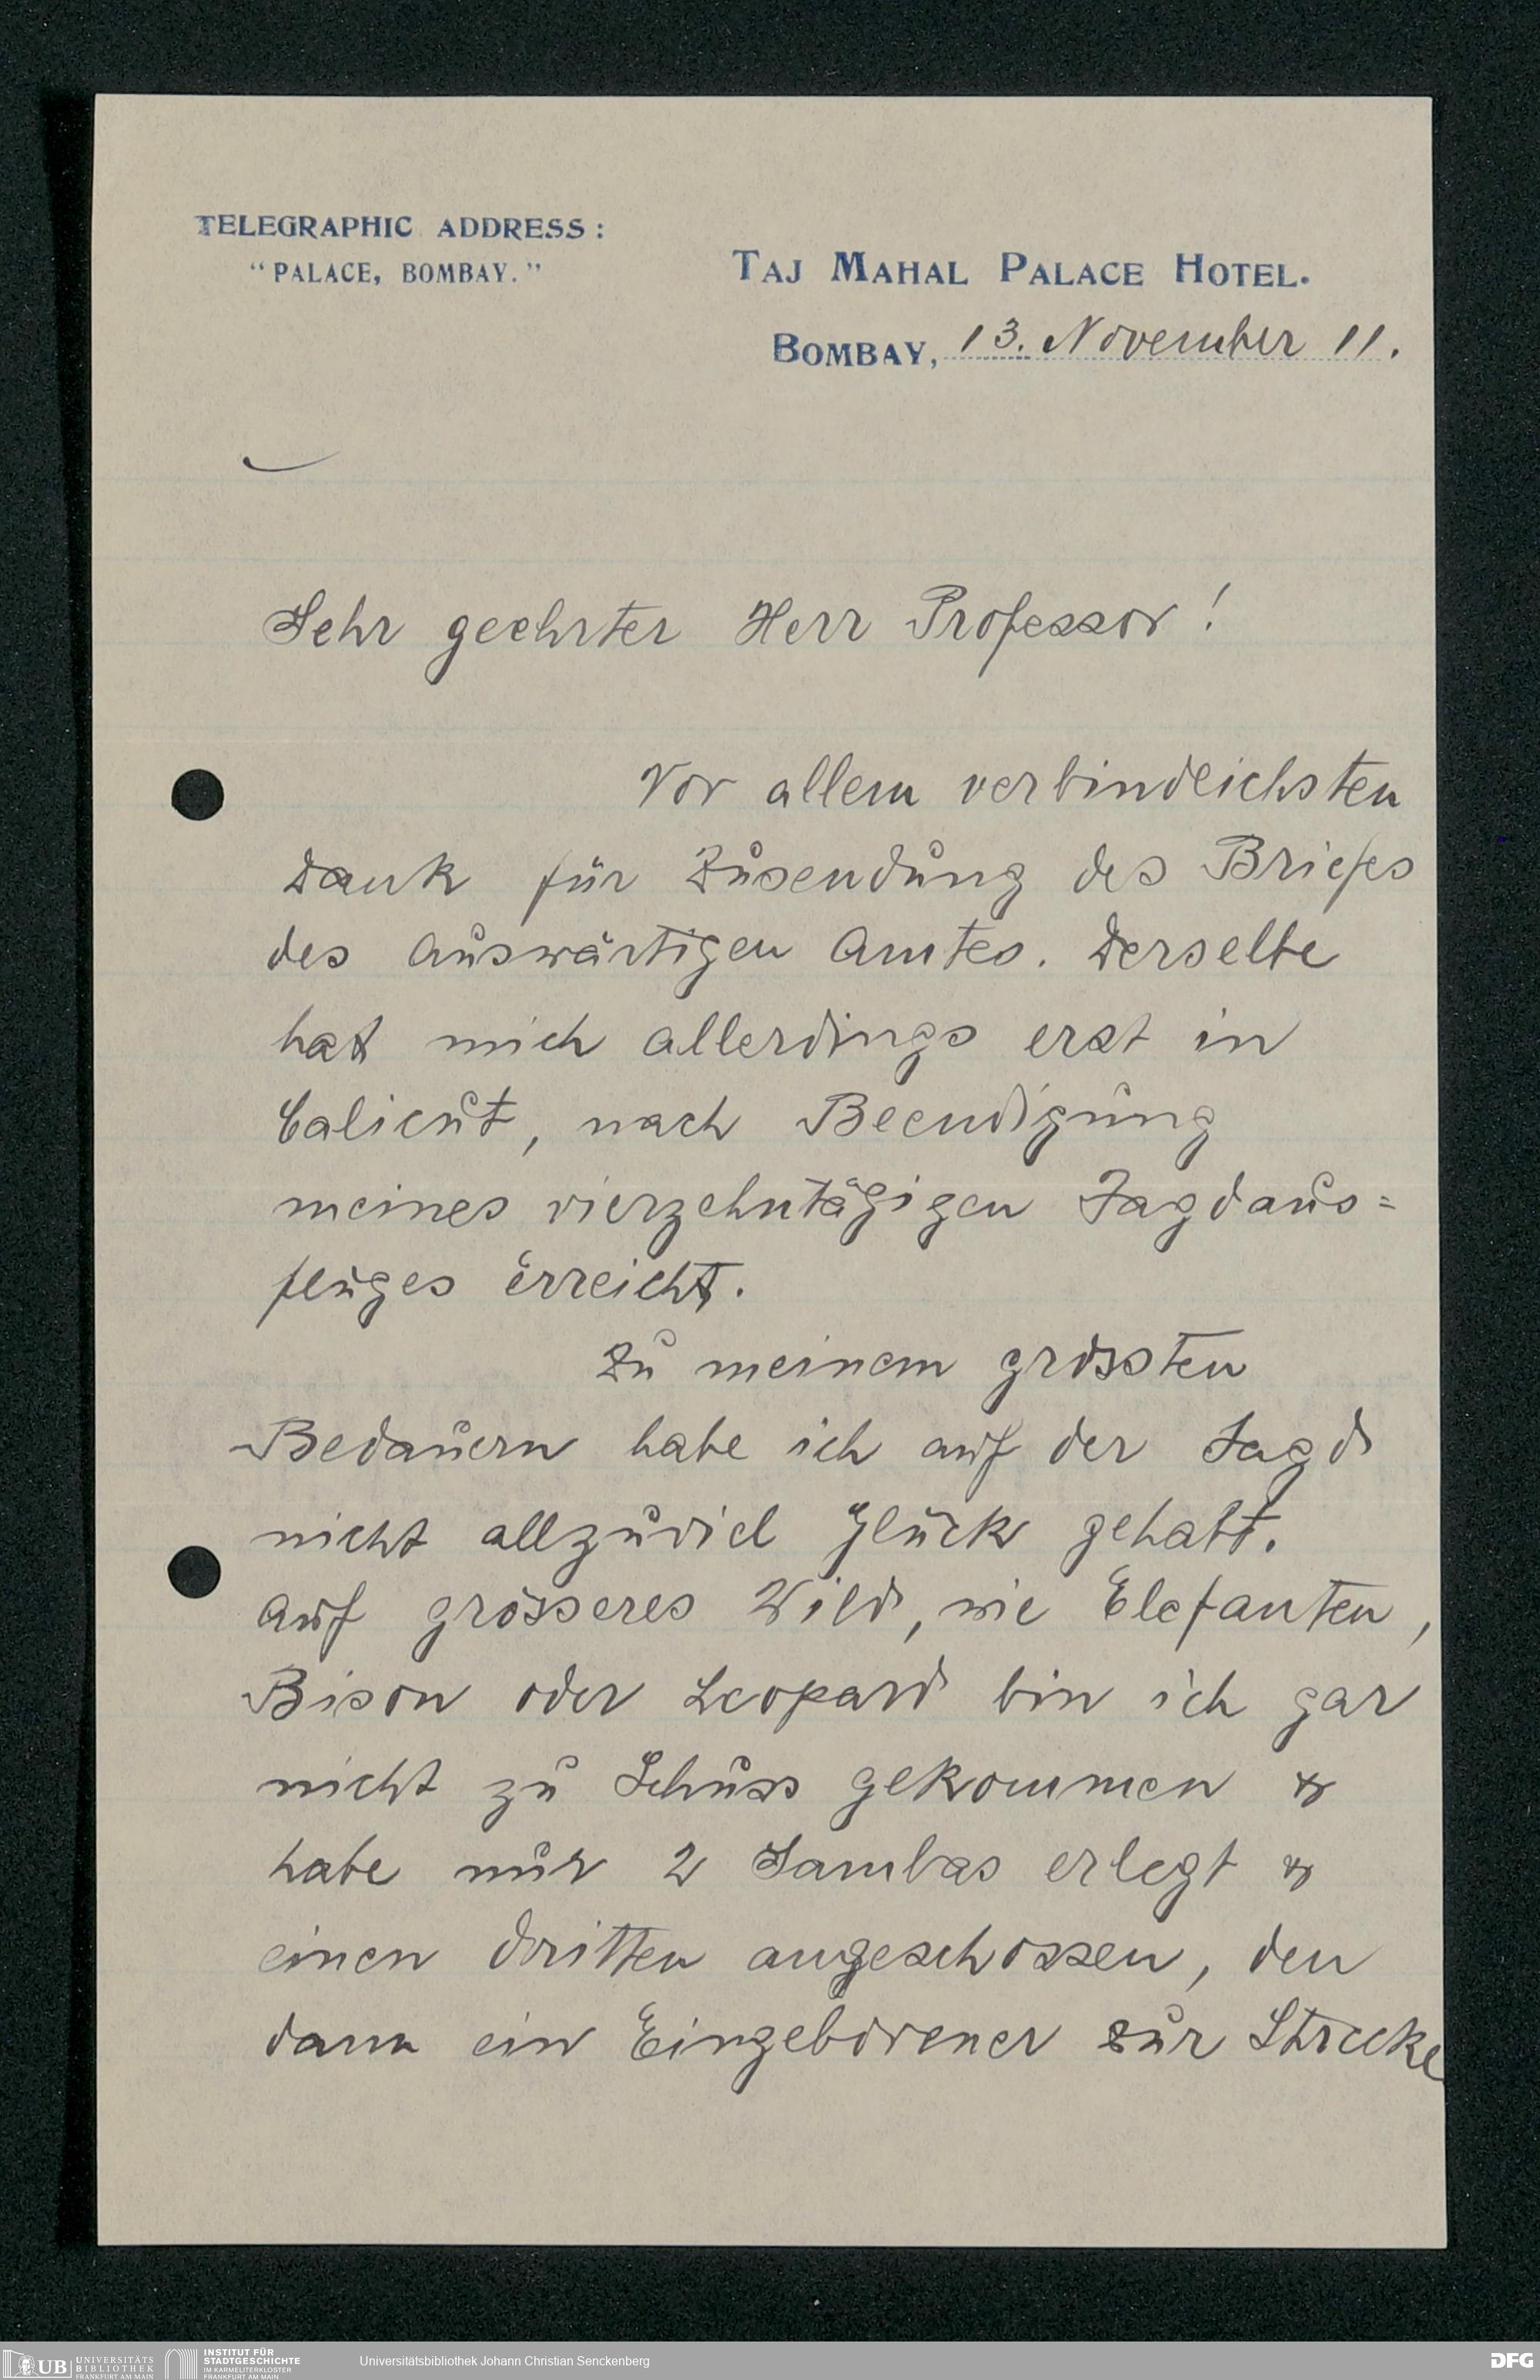 TELEGRAPHIC ADDRESS:
"PALACE, BOMBAY."
TAJ MAHAL PALACE HOTEL.
BOMBAY, 13. November 11.
Sehr geehrter Herr Professor!
Vor allem verbindlichsten
Dank für Zusendung des Briefes
des Auswärtigen Amtes. Derselbe
hat mich allerdings erst in
Calicut, nach Beendigung
meines vierzehntägigen Jagdaus=
fluges erreicht.
Zu meinem grossten
Bedauern habe ich auf der Jagd
nicht allzuviel Glück gehabt.
Auf grösseres Wild, wie Elefanten,
Bison oder Leopard bin ich gar
nicht zu Schuss gekommen &
habe nur 2 Sambas erlegt &
einen dritten angeschossen, den
dann ein Eingeborener zur Strecke
UB UNIVERSITÄTS
BIBLIOTHEK
FRANKFURT AM MAIN
INSTITUT FÜR
STADTGESCHICHTE
IM KARMELITERKLOSTER
FRANKFURT AM MAIN
Universitätsbibliothek Johann Christian Senckenberg
DFG